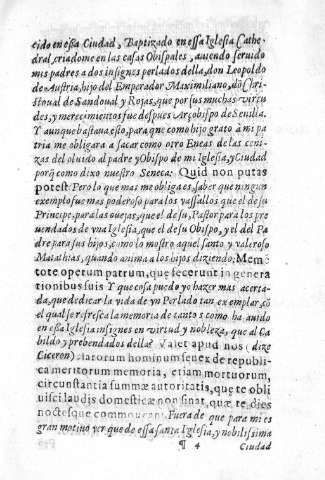 cido en essa Ciudad, Baptizado en essa Iglesia Cathe-
dral, criadome en las casas Obispales, auiendo seruido
mis padres a dos insignes perlados della, don Leopoldo
de Austria, hijo del Emperador Maximiliano, dō Chri-
stoual de Sandoual y Rojas, que por sus muchas virtu
des, y merecimientos fue despues Arçobispo de Seuilla.
Y aunque bastaua esto, para que como hijo grato à mi pa
tria me obligara a sacar como otro Eneas de las ceni-
zas del oluido al padre y Obispo de mi Iglesia, y Ciudad
porq̃ como dixo nuestro Seneca: Quid non putas
potest. Pero lo que mas me obliga es, saber que ningun
exemplo fue mas poderoso para los vassallos que el de su
Principe, para las ouejas, que el de su, Pastor para los pre
uendados de vna Iglesia, que el de su Obispo, y el del Pa
dre para sus hijos, como lo mostro aquel santo y valeroso
Matathias, quando anima a los hijos diziendo: Memē
tote operum patrum, quæ fecerunt in genera
tionibus suis Y que cosa puedo yo hazer mas acerta-
da, que dedicar la vida de vn Perlado tan exemplar, cō
el qual se refresca la memoria de tantos como ha auido
en essa Iglesia insignes en virtud y nobleza, que al Ca
bildo y prebendados della? Valet apud nos (dize
Ciceron) clarorum hominum senex de republi
ca meritorum memoria, etiam mortuorum,
circunstantia summæ autoritatis, que te obli
uisci laudis domesticæ non sinat, quæ te dies
noctesque commoueant. Fuera de que para mi es
gran motiuo ver que de essa santa Iglesia, y nobilissima
¶ 4 Ciudad